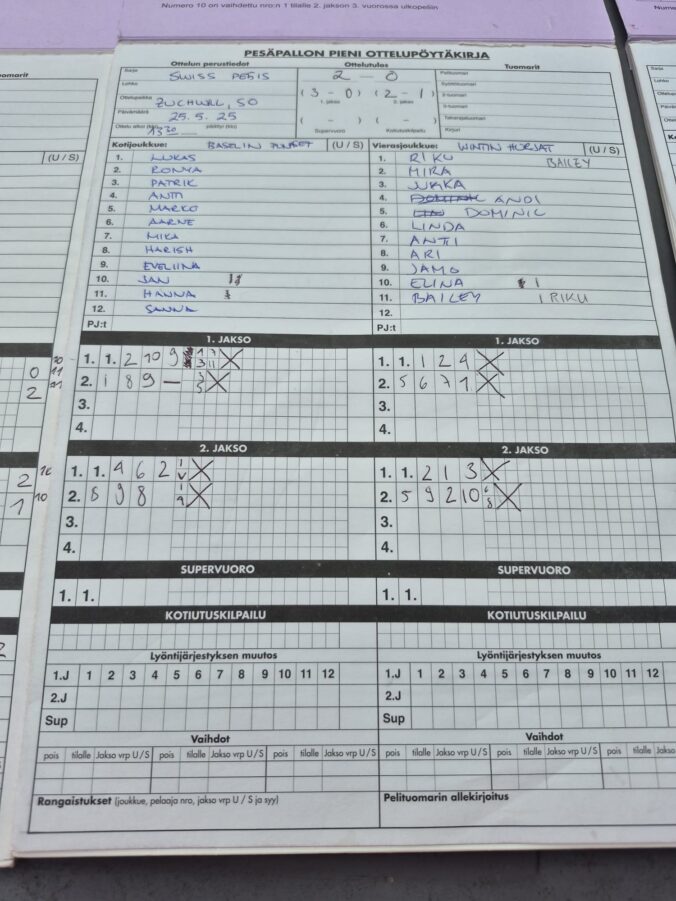 Numero 10 on vaihdettu nro:n 1 tilalle 2. jakson 3. vuorossa ulkopeliin
PESÄPALLON PIENI OTTELUPÖYTÄKIRJA
Ottelun perustiedot Ottelutulos Tuomarit
Sarja SWISS PESIS 2 - 0 Pelituomari
Lohko (3 - 0) (2 - 1) Syöttötuomari
1. jakso 2. jakso
Ottelupaikka ZUCHWIL, SO
Päivämäärä 25.5.25 ( - ) ( - ) Takarajatuomari
Ottelu alkoi (klo) 13 30 päättyi (klo) Supervuoro Kotiutuskilpailu Kirjuri
Kotijoukkue: BASELIN (U / S) Vierasjoukkue: WINTIN HURJAT (U / S)
1. LUKAS 1. RIKU BAILEY
2. RONYA 2. MIRA
3. PATRIK 3. JUKKA
4. ANTTI 4. ANDI
5. MARKO 5. DOMINIC
6. AARNE 6. LINDA
7. MIKA 7. ANTTI
8. HARISH 8. ARI
9. EVELIINA 9. JAMO
10. JAN 10. ELINA 1
11. HANNA 11. BAILEY 1 RIKU
12. SANNA 12.
PJ:t PJ:t
1. JAKSO 1. JAKSO
1. 1. 2 10 9 X 1. 1. 1 2 4 X
2. 1 8 9 — 3 5 X 2. 5 6 7 1 X
3. 3.
4. 4.
2. JAKSO 2. JAKSO
1. 1. 4 6 2 X 1. 1. 2 1 3 X
2. 5 9 8 X 2. 5 9 2 10 6 8 X
3. 3.
4. 4.
SUPERVUORO SUPERVUORO
1. 1. 1. 1.
KOTIUTUSKILPAILU KOTIUTUSKILPAILU
Lyöntijärjestyksen muutos Lyöntijärjestyksen muutos
1.J 1 2 3 4 5 6 7 8 9 10 11 12 1.J 1 2 3 4 5 6 7 8 9 10 11 12
2.J 2.J
Sup Sup
Vaihdot Vaihdot
pois tilalle Jakso vrp U / S pois tilalle Jakso vrp U / S pois tilalle Jakso vrp U / S pois tilalle Jakso vrp U / S pois tilalle Jakso vrp U / S pois tilalle Jakso
Rangaistukset (joukkue, pelaaja nro, jakso vrp U / S ja syy) Pelituomarin allekirjoitus